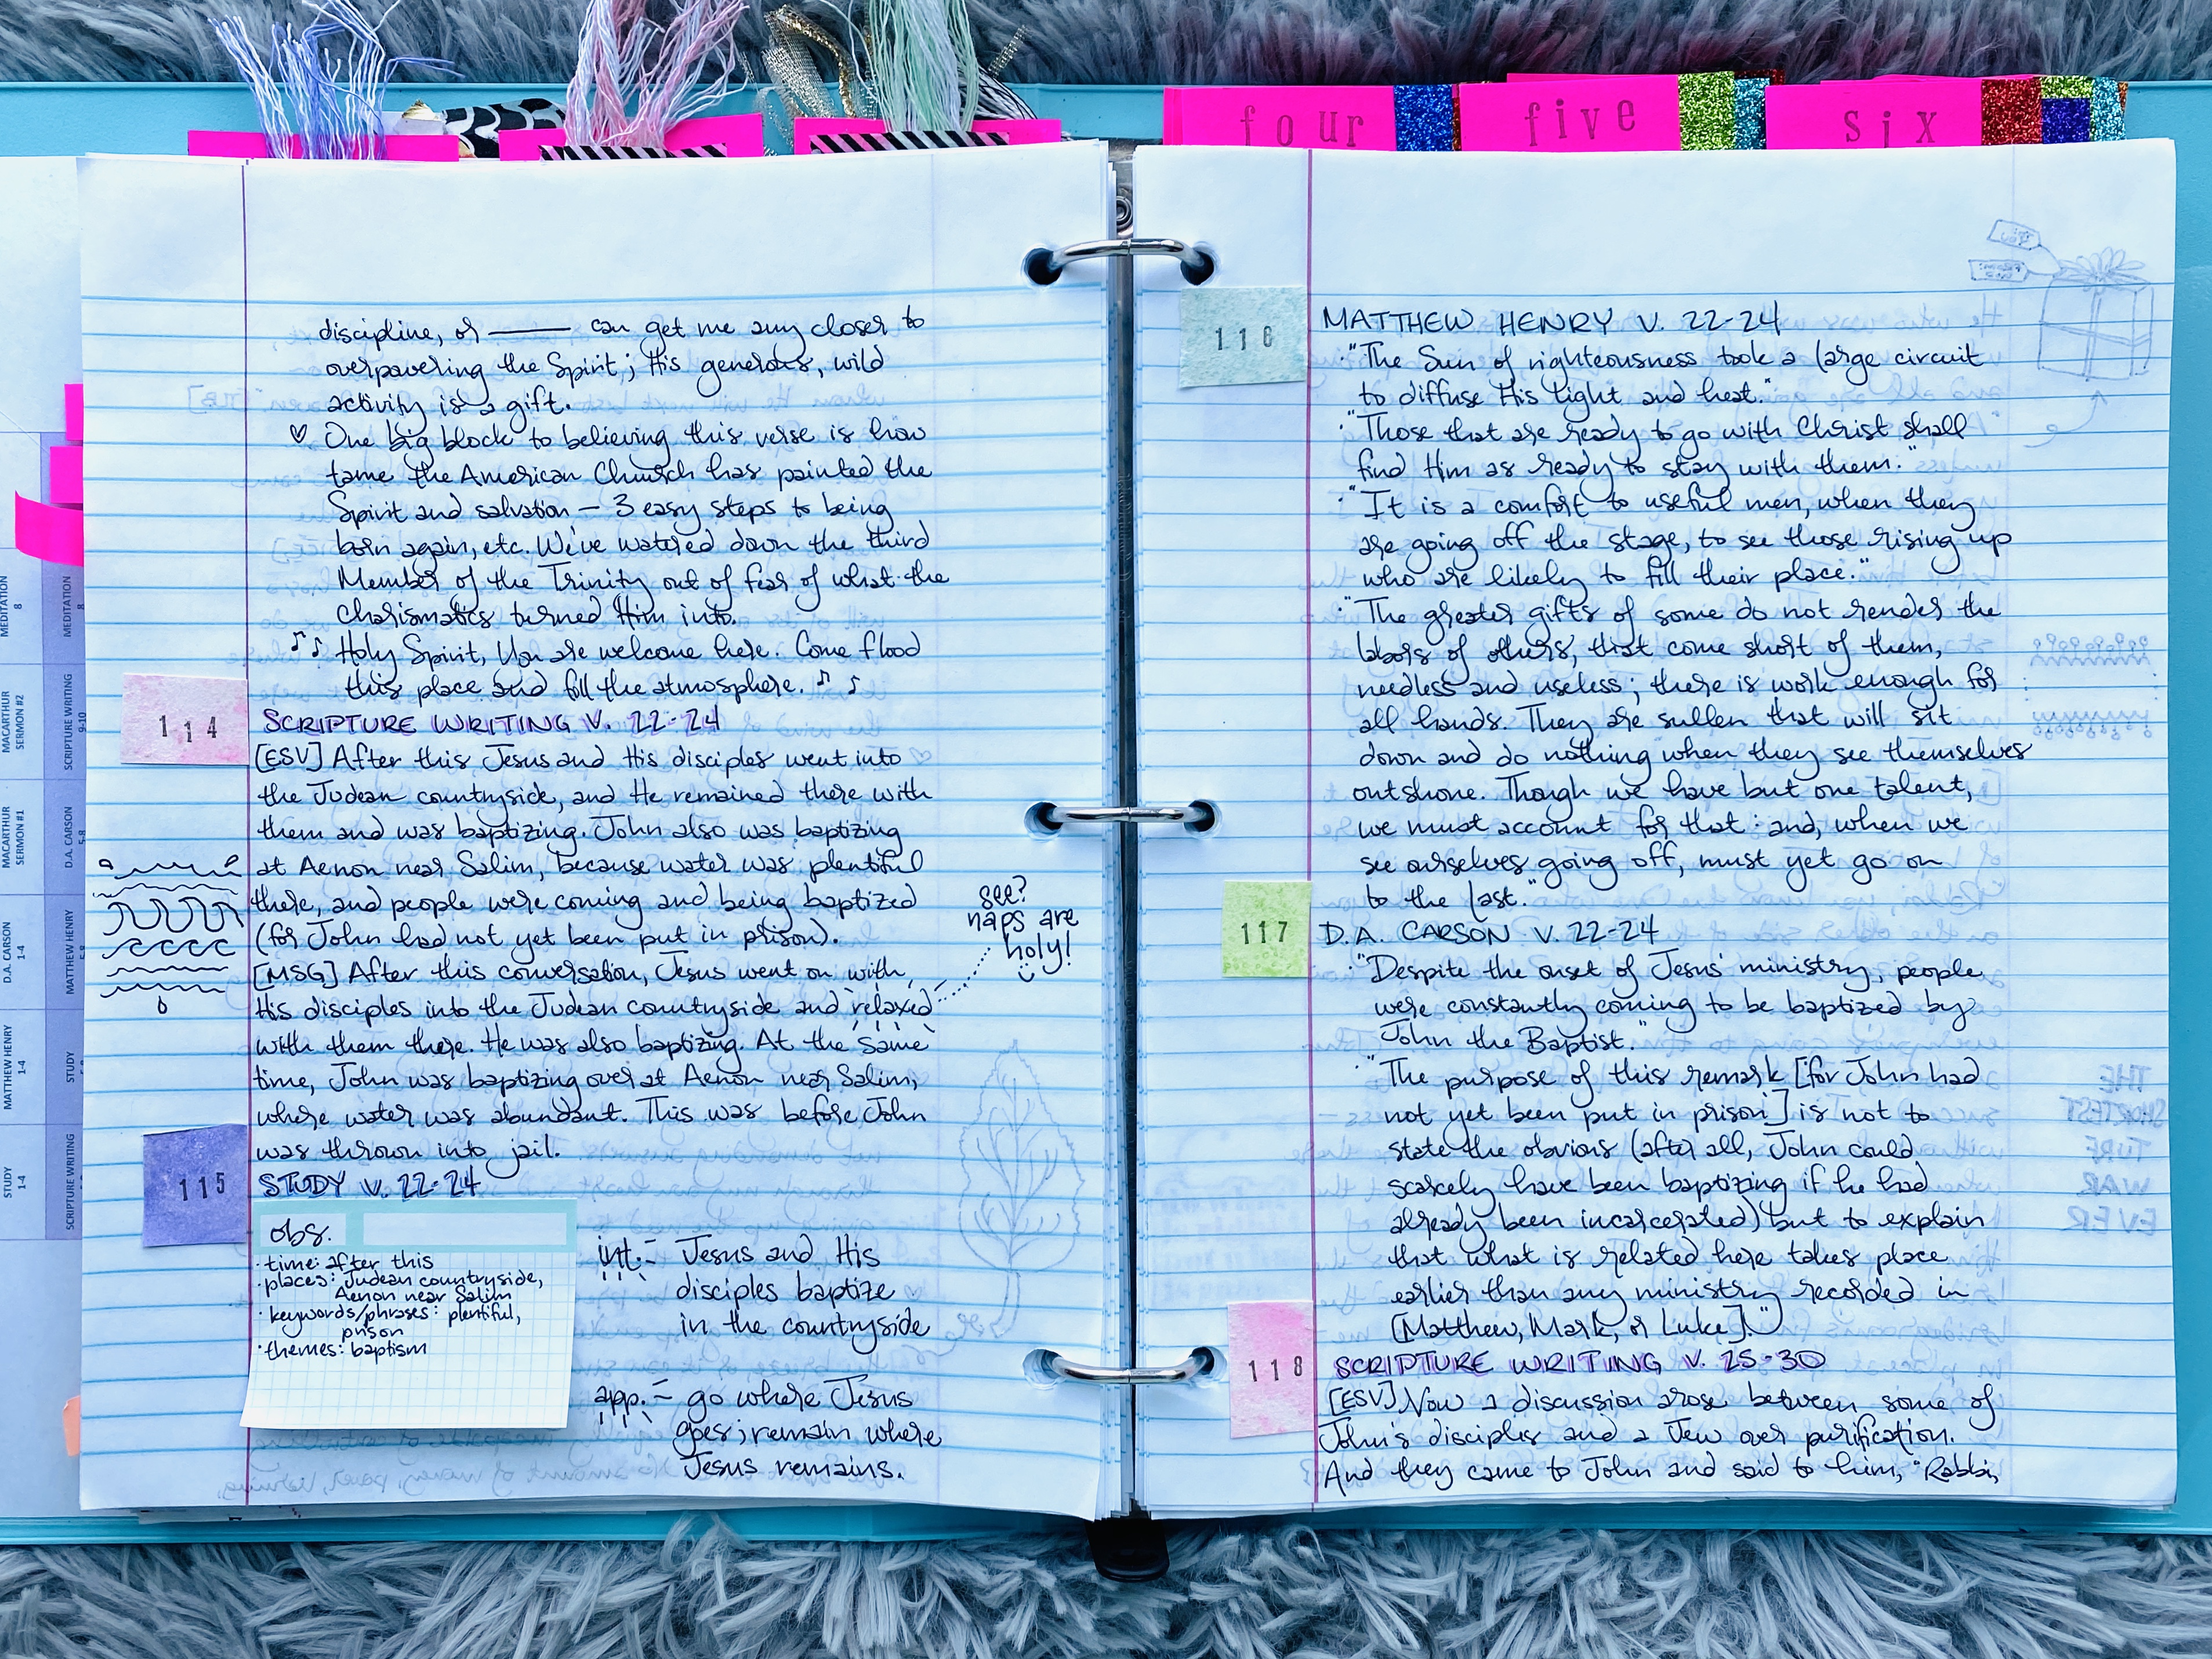 four
five
six
discipline, or ——— can get me any closer to
overpowering the Spirit; His generous, wild
activity is a gift.
♡ One big block to believing this verse is how
tame the American Church has painted the
Spirit and salvation — 3 easy steps to being
born again, etc. We've watered down the third
Member of the Trinity out of fear of what the
charismatics turned Him into.
♪♪ Holy Spirit, You are welcome here. Come flood
this place and fill the atmosphere. ♪ ♪
114
SCRIPTURE WRITING V. 22-24
[ESV] After this Jesus and His disciples went into
the Judean countryside, and He remained there with
them and was baptizing. John also was baptizing
at Aenon near Salim, because water was plentiful
there, and people were coming and being baptized
(for John had not yet been put in prison).
[MSG] After this conversation, Jesus went on with
His disciples into the Judean countryside and relaxed
with them there. He was also baptizing. At the same
time, John was baptizing over at Aenon near Salim,
where water was abundant. This was before John
was thrown into jail.
see?
naps are
holy!
115
STUDY V. 22-24
obs.
· time: after this
· places: Judean countryside,
Aenon near Salim
· keywords/phrases: plentiful,
prison
· themes: baptism
int. - Jesus and His
disciples baptize
in the countryside
app. - go where Jesus
goes; remain where
Jesus remains.
116
MATTHEW HENRY V. 22-24
· "The Sun of righteousness took a large circuit
to diffuse His light and heat."
· "Those that are ready to go with Christ shall
find Him as ready to stay with them."
· "It is a comfort to useful men, when they
are going off the stage, to see those rising up
who are likely to fill their place."
· "The greater gifts of some do not render the
labors of others, that come short of them,
needless and useless; there is work enough for
all hands. They are sullen that will sit
down and do nothing when they see themselves
outshone. Though we have but one talent,
we must account for that: and, when we
see ourselves going off, must yet go on
to the last."
117
D.A. CARSON V. 22-24
· "Despite the onset of Jesus' ministry, people
were constantly coming to be baptized by
John the Baptist."
· "The purpose of this remark [for John had
not yet been put in prison] is not to
state the obvious (after all, John could
scarcely have been baptizing if he had
already been incarcerated) but to explain
that what is related here takes place
earlier than any ministry recorded in
[Matthew, Mark, or Luke]."
118
SCRIPTURE WRITING V. 25-30
[ESV] Now a discussion arose between some of
John's disciples and a Jew over purification.
And they came to John and said to him, "Rabbi,
MEDITATION
8
MACARTHUR
SERMON #2
MACARTHUR
SERMON #1
D.A. CARSON
1-4
MATTHEW HENRY
1-4
STUDY
1-4
MEDITATION
8
SCRIPTURE WRITING
9-10
D.A. CARSON
5-8
MATTHEW HENRY
STUDY
SCRIPTURE WRITING
THE
SHORTEST
TURF
WAR
EVER